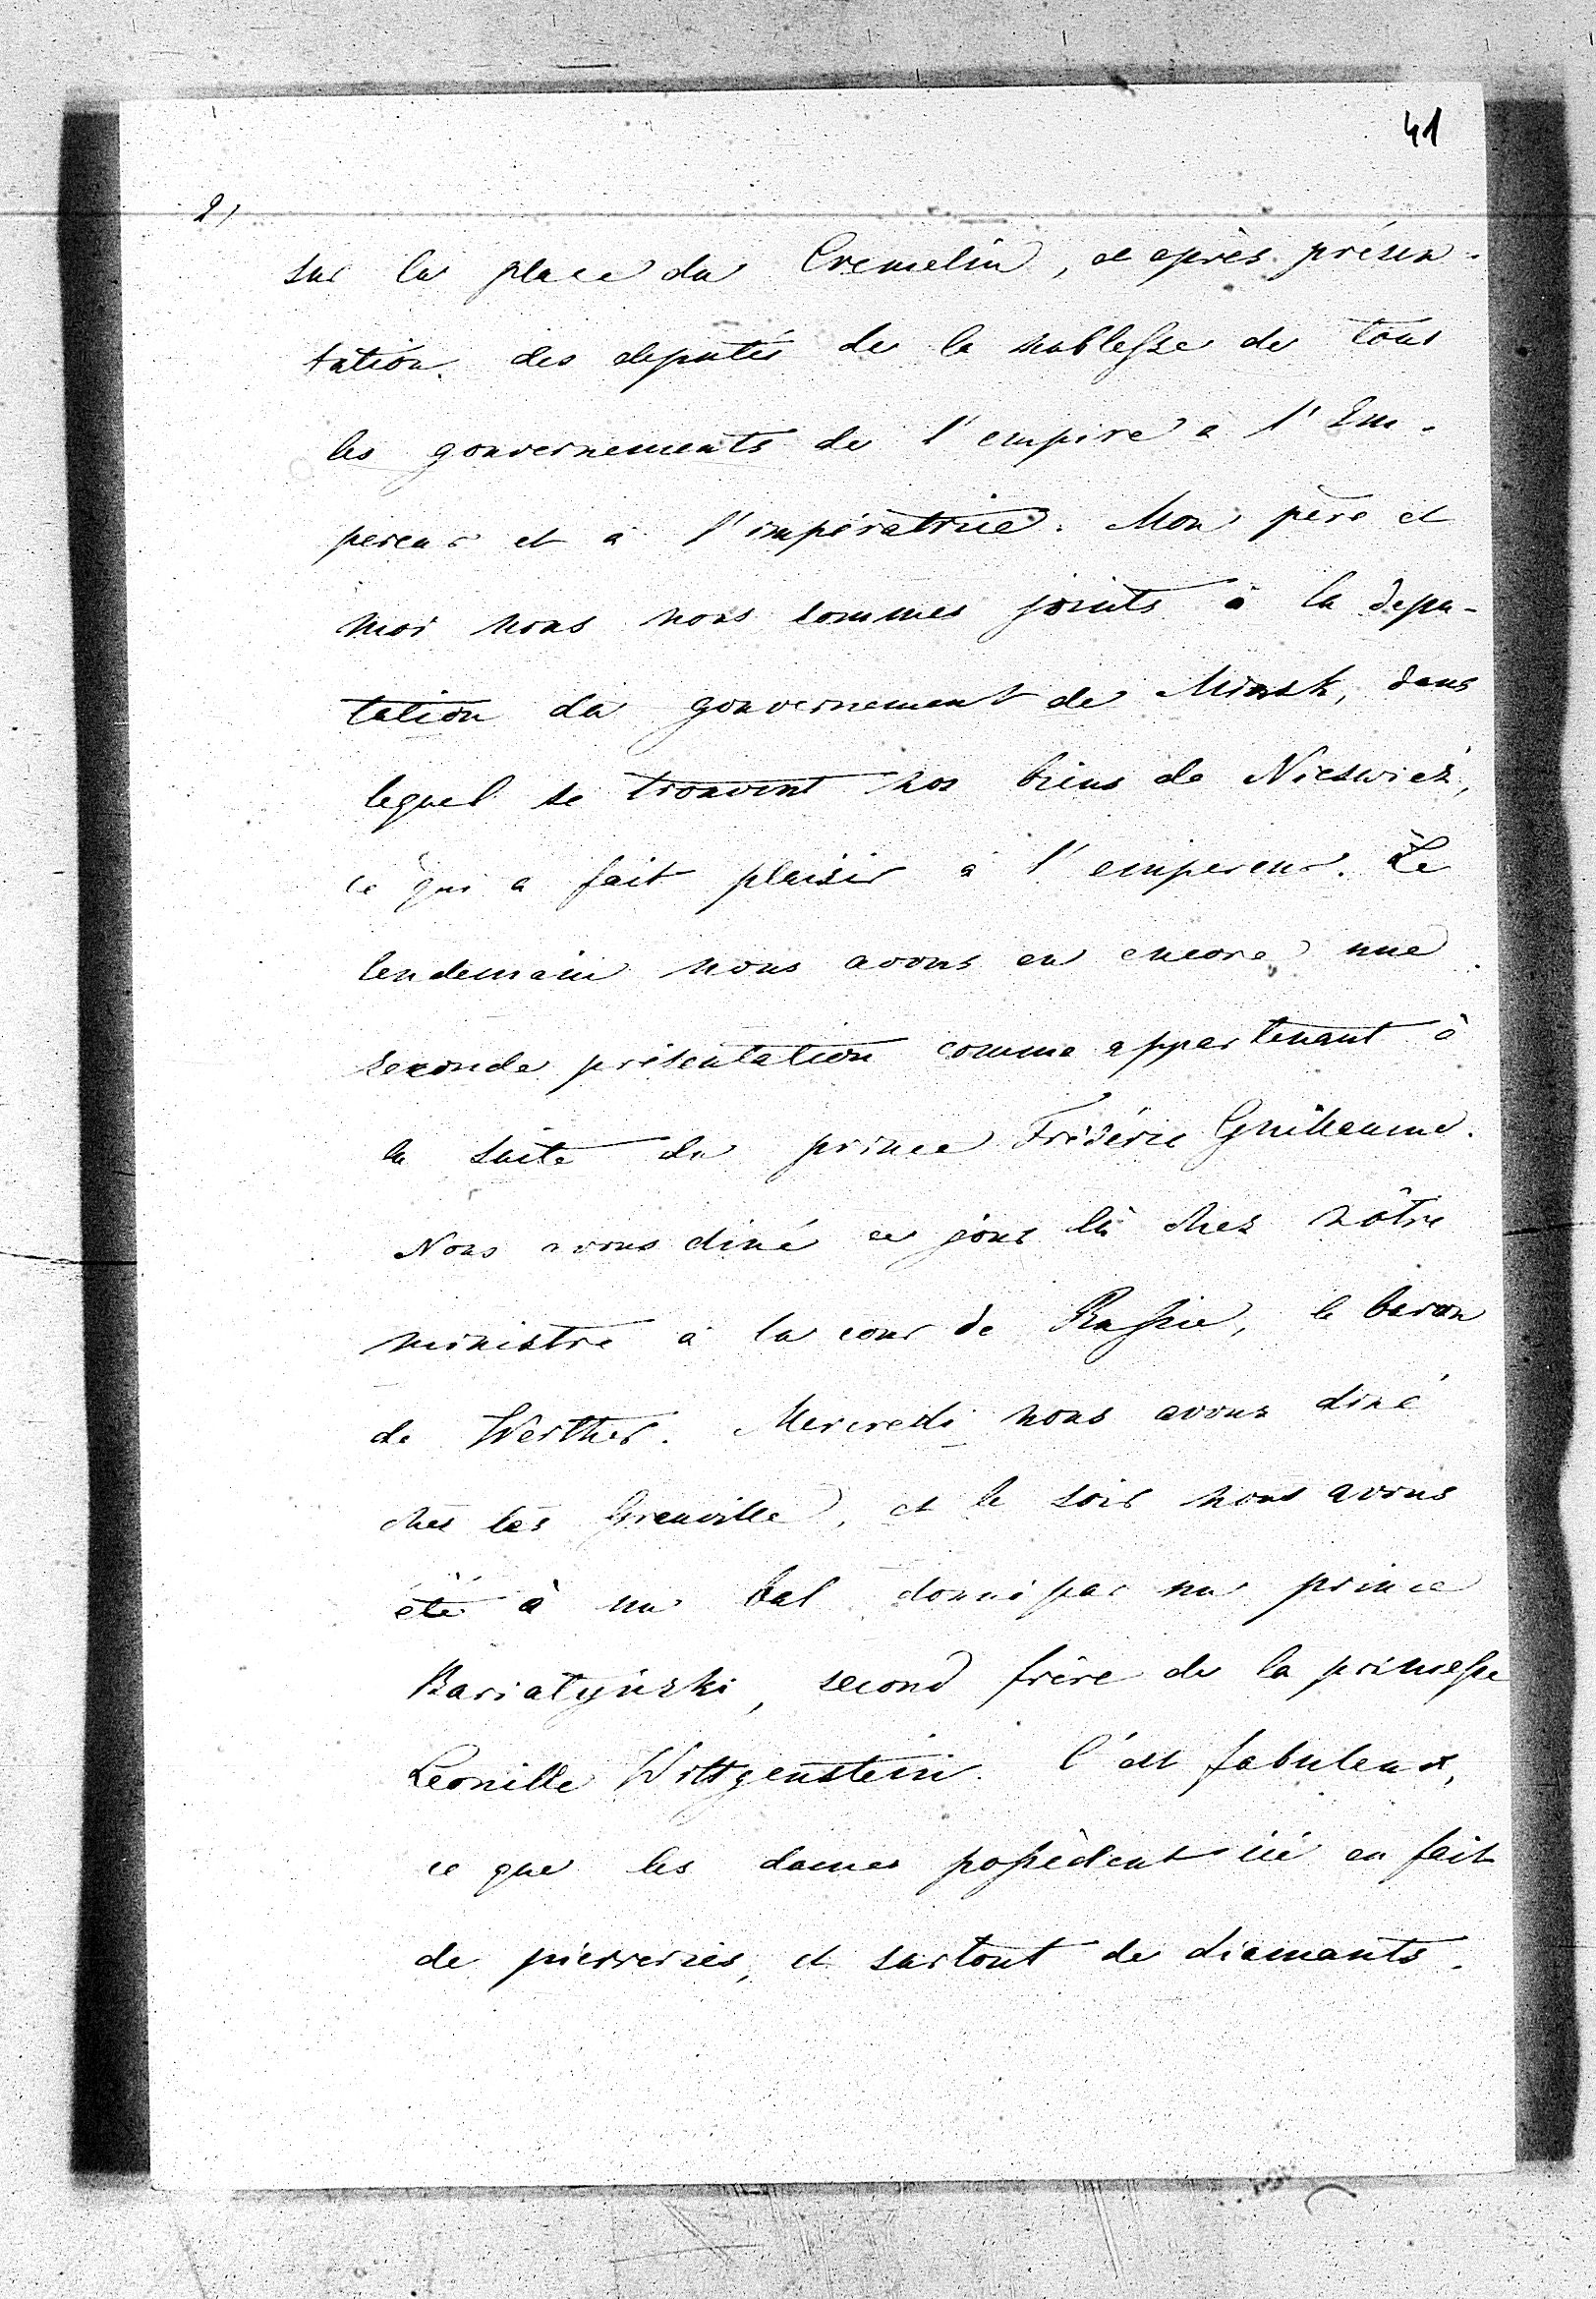 41
2)
sur la place du Cremelin, et après présen-
tation des deputés de la noblesse de tous
les gouvernements de l'empire a l'Em-
pereur et à l'impératrice. Mon père et
moi nous nous sommes joints à la depu-
tation du gouvernement de Minsk, dans
lequel se trouvent nos biens de Nieswiez,
ce qui a fait plaisir à l'empereur. Le
lendemain nous avons eu encore une
seconde présentation comme appartenant à
la suite du prince Fréderic Guillaume.
Nous avons diné ce jour là chez nôtre
ministre à la cour de Russie, le baron
de Werther. Mercredi nous avons diné
chez les Grenville, et le soir nous avons
été à un bal donné par un prince
Bariatyński, second frère de la princesse
Leonille Wittgenstein. C'est fabuleux,
ce que les dames possèdent ici en fait
de pierreries, et surtout de diamants.